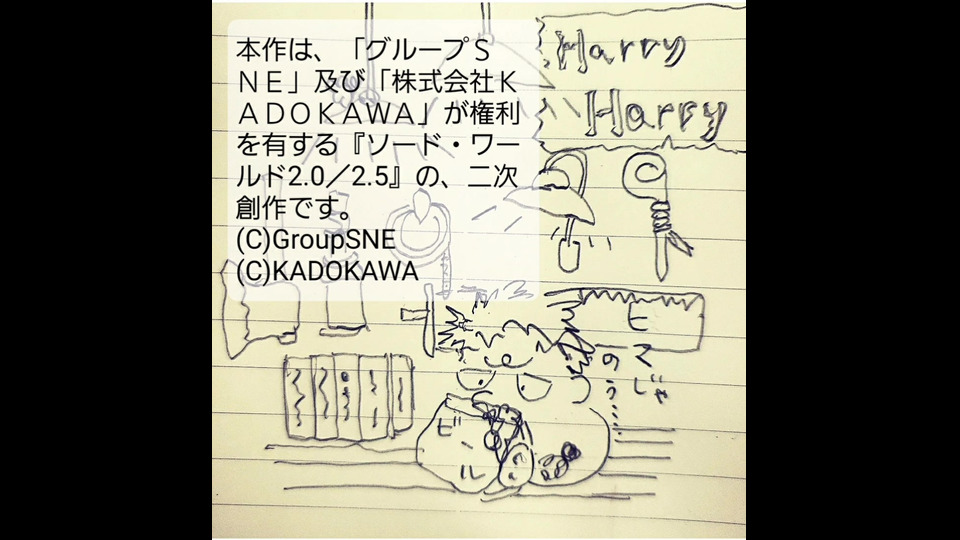 本作は、「グループＳ
ＮＥ」及び「株式会社Ｋ
ＡＤＯＫＡＷＡ」が権利
を有する『ソード・ワー
ルド2.0／2.5』の、二次
創作です。
(C)GroupSNE
(C)KADOKAWA
Harry
Harry
ヒマじゃ
のう……
ビール